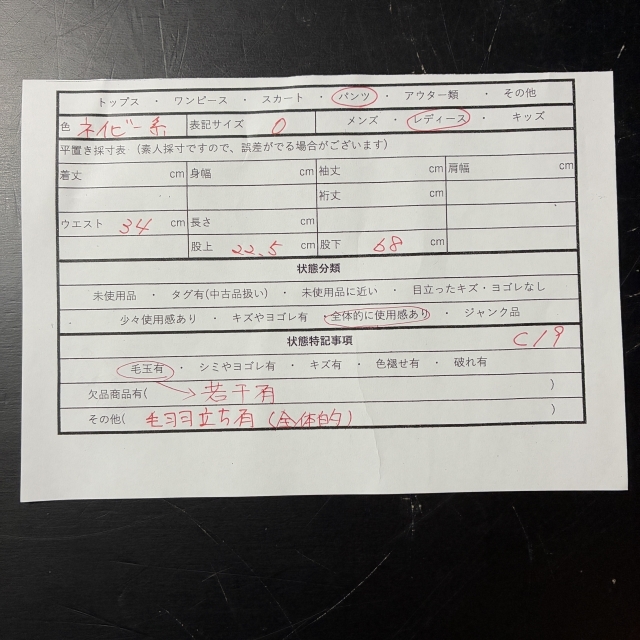 トップス ・ ワンピース ・ スカート ・ パンツ ・ アウター類 ・ その他
色 ネイビー系 表記サイズ 0 メンズ ・ レディース ・ キッズ
平置き採寸表 (素人採寸ですので、誤差がでる場合がございます)
着丈 cm 身幅 cm 袖丈 cm 肩幅 cm
裄丈 cm
ウエスト 34 cm 長さ cm
股上 22.5 cm 股下 68 cm
状態分類
未使用品 ・ タグ有(中古品扱い) ・ 未使用品に近い ・ 目立ったキズ・ヨゴレなし
少々使用感あり ・ キズやヨゴレ有 ・ 全体的に使用感あり ・ ジャンク品
状態特記事項 C19
毛玉有 ・ シミやヨゴレ有 ・ キズ有 ・ 色褪せ有 ・ 破れ有
欠品商品有( 若干有 )
その他( 毛羽立ち有(全体的) )